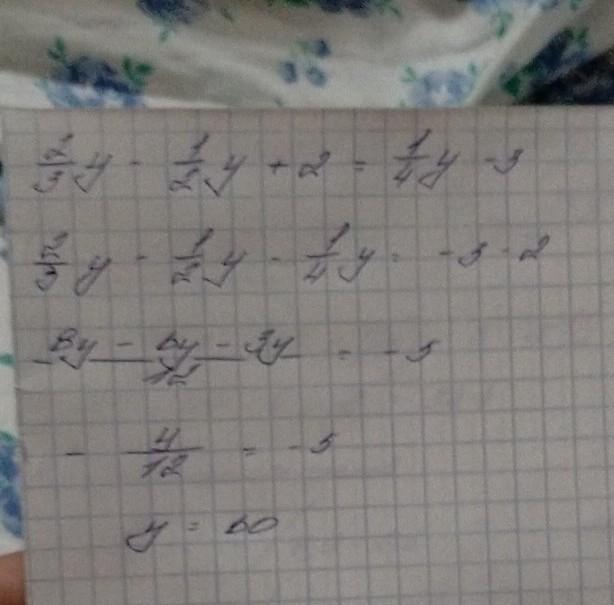 2/3 y - 1/2 y + 2 = 1/4 y - 3
2/3 y - 1/2 y - 1/4 y = -3 - 2
8y - 6y - 3y / 12 = -5
- y/12 = -5
y = 60